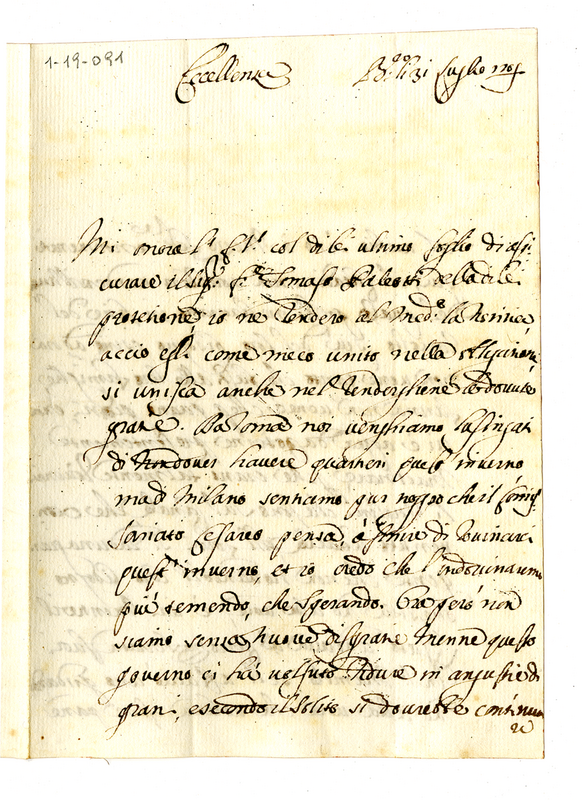 1-19-091
Eccellenza
li 31 Luglio 1705
Mi onora l' E. V. col di lei ultimo foglio di assi
curare il Sig. Tomaso Paleotti della di lei
protetione io ne renderò al Med. la notitia
acciò egli come meco unito nella
si unisca anche nel rendergliene le dovute
gratie. Da Roma noi venghiamo lusingati
di non dover havere quartieri quest' inverno
ma di Milano sentiamo pur troppo che il Comis
sariato Cesareo pensa di rovinarci
quest' inverno, et io credo che l'indovinaremo
più temendo, che sperando. Ora però non
siamo senza nuove disgratie mentre questo
governo ci hà voluto ridure in angustie di
grani, e secondo il solito si dovrebbe continua
re